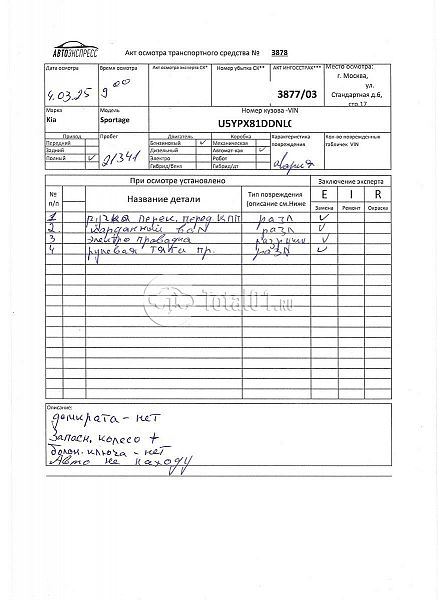 АВТОЭКСПРЕСС
Акт осмотра транспортного средства № 3878
Дата осмотра Время осмотра Акт осмотра эксперта СК* Номер убытка СК** АКТ ИНГОССТРАХ*** Место осмотра:
г. Москва,
4.03.25 9 00 ул.
3877/03 Стандартная д.6,
стр.17
Марка Модель Номер кузова -VIN
Kia Sportage U5YPX81DDNL
Привод Пробег Двигатель Коробка Характеристика повреждения Кол-во поврежденных табличек VIN
Передний Бензиновый ✓ Механическая
Задний Дизельный Автомат-кая ✓
Полный ✓ 21341 Электро Робот авария
Гибрид/бенз Гибрид/дт
При осмотре установлено Заключение эксперта
№ п/п Название детали Тип повреждения (описание см.Ниже E I R
Замена Ремонт Окраска
1 перек. перед. КПП разл ✓
2. карданный вал разл ✓
3 электро проводка ✓
4 рулевая тяга пр. разл ✓
Total01.ru
Описание:
домкрата - нет
Запасн. колесо +
балон. ключа - нет
Авто не на ходу